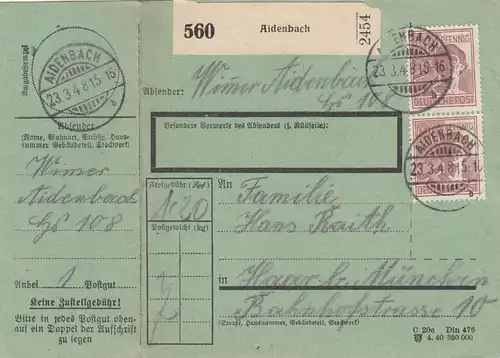 560 Aidenbach
2454
Aufgabestempel
AIDENBACH
23.3.48.15-16
b
Absender
(Name, Wohnort, Straße, Haus-
nummer Gebäudeteil, Stockwerk)
Wimer
Aidenbach
Hs 108
Anbei 1 Postgut
Keine Zustellgebühr!
Bitte in jedes Postgut oben-
auf ein Doppel der Aufschrift
zu legen
Absender: Wimer Aidenbach
Hs 108
Besondere Vermerke des Absenders (s. Rückseite):
Freigebühr (Rpf)
1.20
Postgewicht (kg)
An Familie
Hans Raith
in Haar b. München
Bahnhofstrasse 10
(Straße, Hausnummer, Gebäudeteil, Stockwerk)
C 20c Din 476
4. 40 380 000
PFENNIG
DEUTSCHE POST
AIDENBACH
23.3.48.15-16
b
DEUTSCHE POST
AIDENBACH
23.3.48.15-16
b